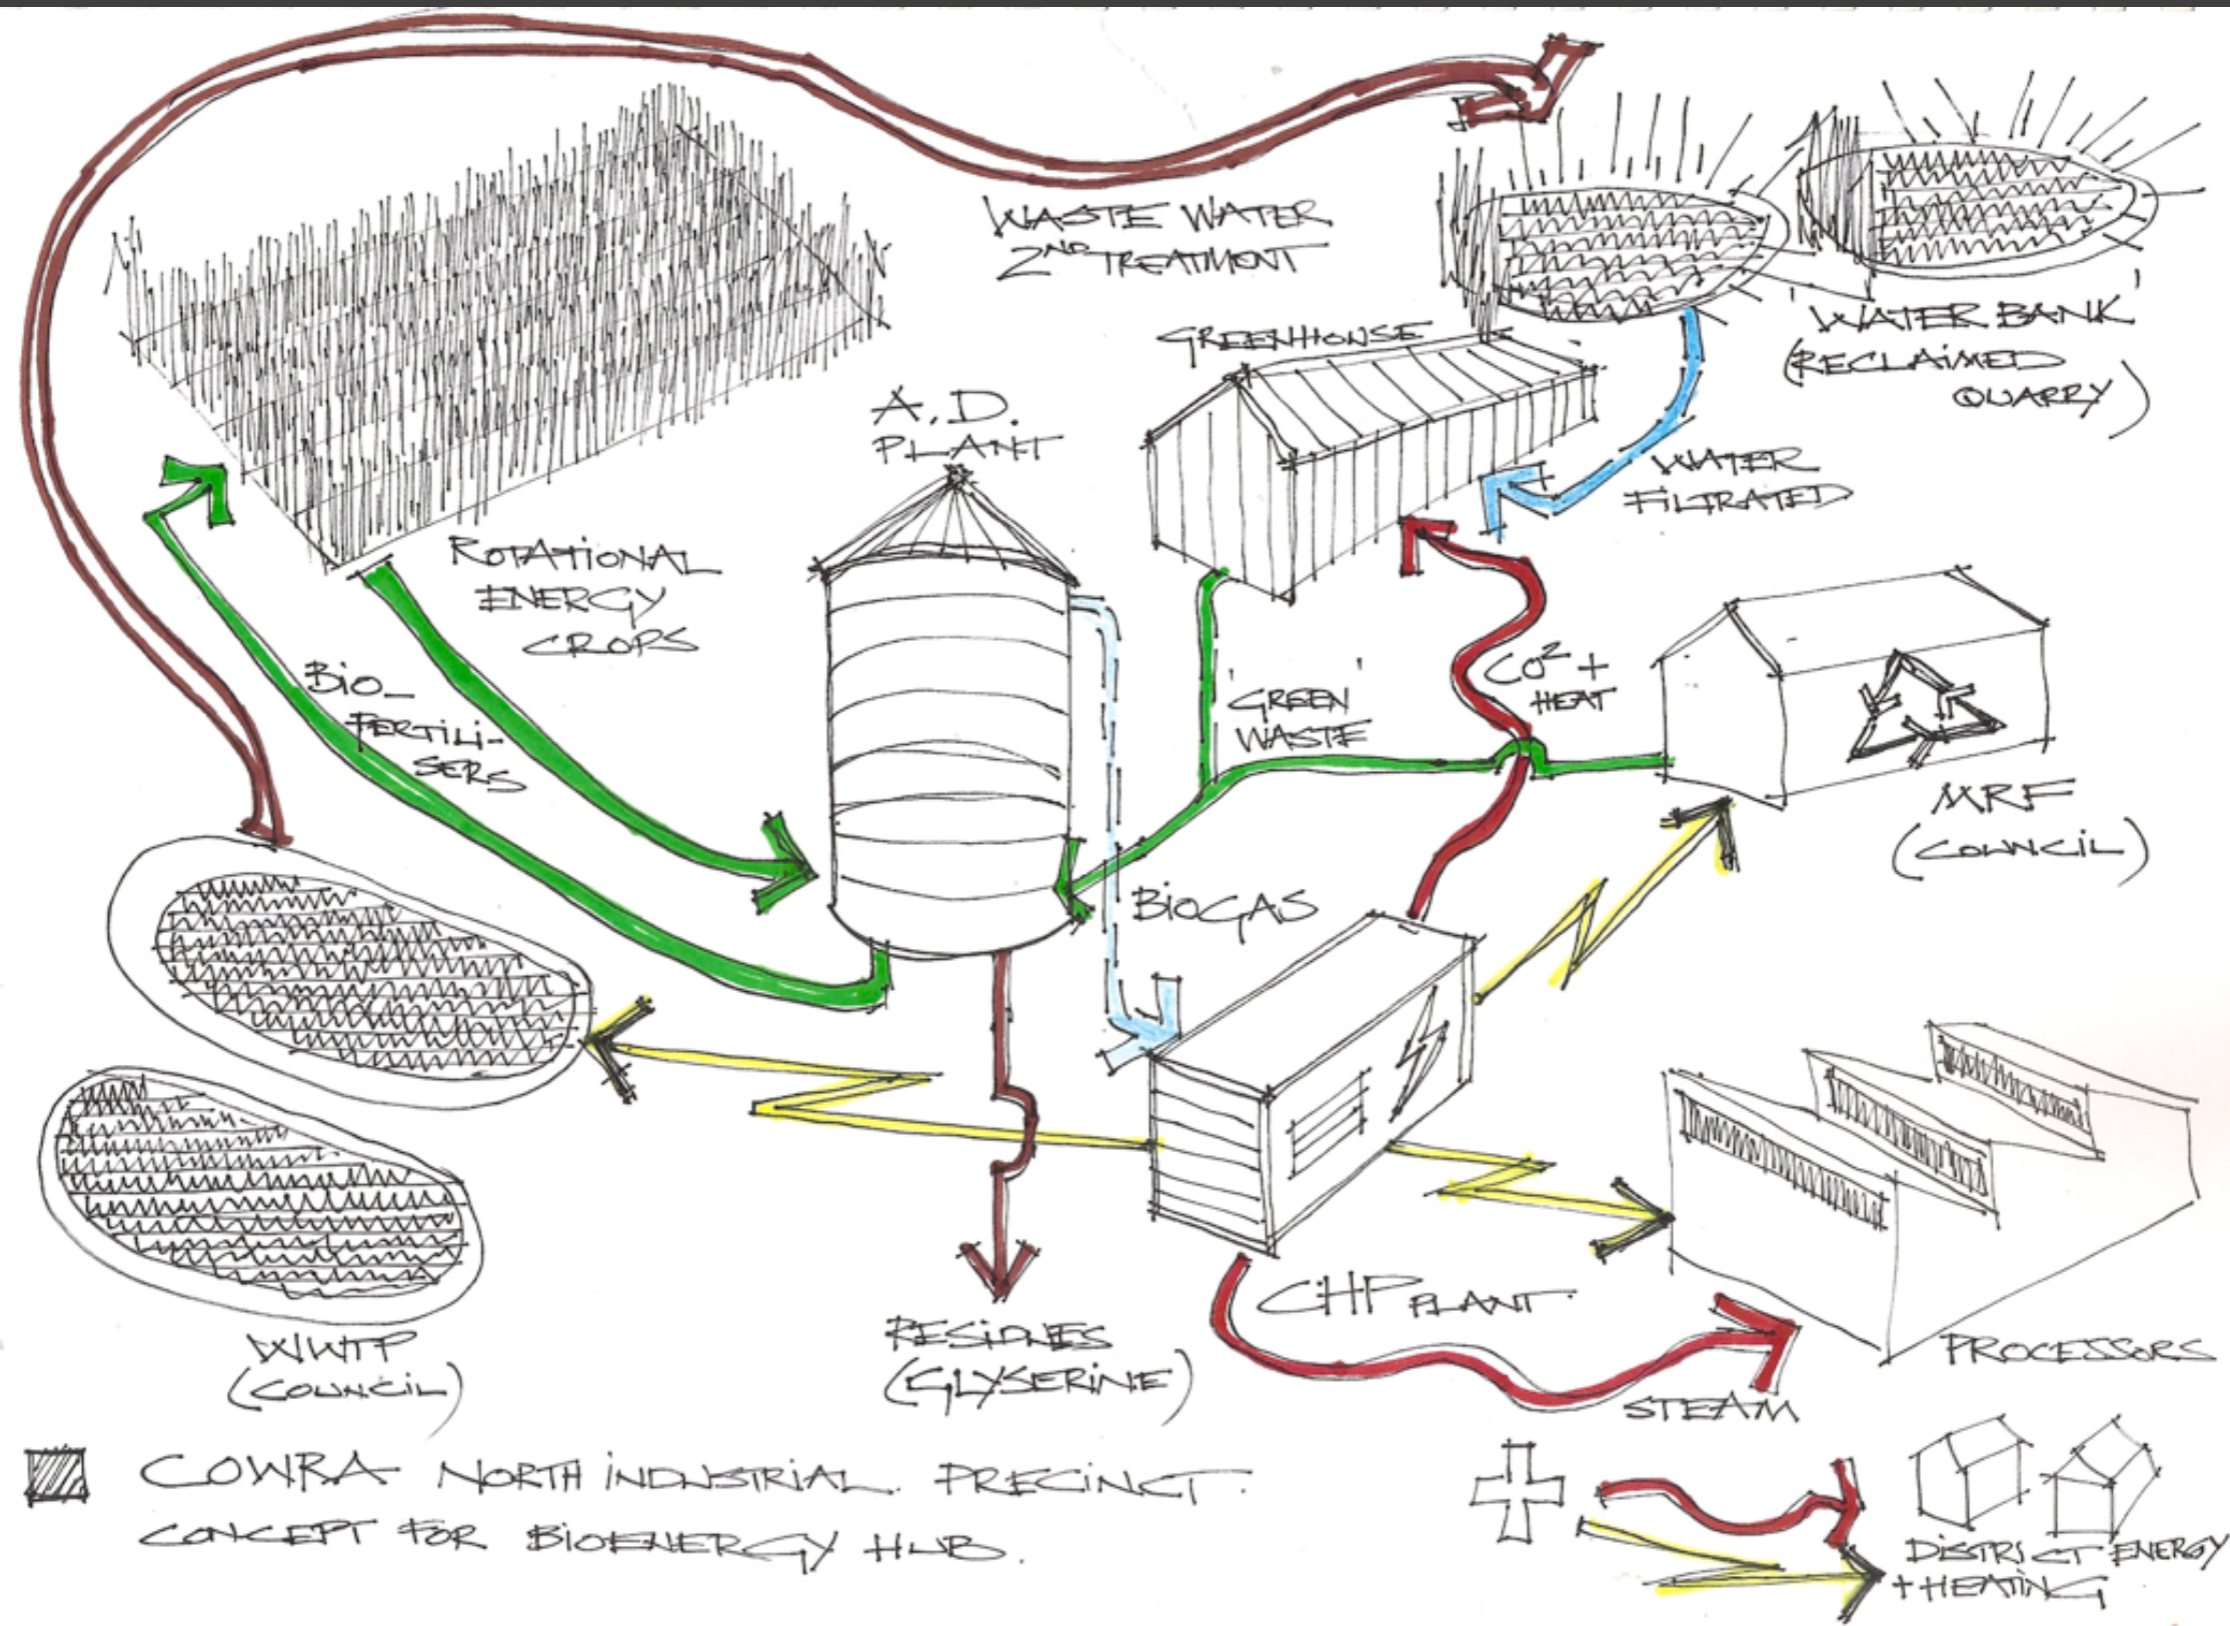 WASTE WATER
2ND TREATMENT
'WATER BANK'
(RECLAIMED
QUARRY)
GREENHOUSE
A.D.
PLANT
WATER
FILTRATED
ROTATIONAL
ENERGY
CROPS
BIO-
FERTILI-
SERS
'GREEN'
WASTE
CO2 +
HEAT
MRF
(COUNCIL)
BIOGAS
CHP PLANT.
PROCESSORS
STEAM
WWTP
(COUNCIL)
RESIDUES
(GLYSERINE)
COWRA NORTH INDUSTRIAL. PRECINCT.
CONCEPT FOR BIOENERGY HUB.
DISTRICT ENERGY
+ HEATING